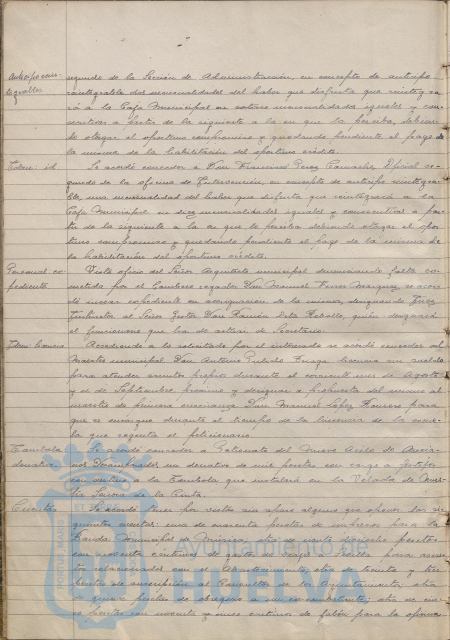 Anticipo rein-
tegrables
segundo de la Sección de Administración, en concepto de anticipo
reintegrable dos mensualidades del haber que disfruta que reinte­gra-
rá a la Caja Municipal en catorce mensualidades iguales y con-
secutivas a partir de la siguiente a la en que la perciba, debien-
do otorgar el oportuno compromiso y quedando pendiente el pago de
la misma de la habilitación del oportuno crédito.
Idem: id
Se acordó conceder a Don Francisco Perez Camacho, Oficial se-
gundo de la oficina de Intervención, en concepto de anticipo reintegra-
ble, una mensualidad del haber que disfruta que reintegrará a la
Caja Municipal en diez mensualidades iguales y consecutivas a par-
tir de la siguiente a la en que la perciba debiendo otorgar el opor-
tuno compromiso y quedando pendiente el pago de la misma de
la habilitación del oportuno crédito.
Personal ex-
pediente
Visto oficio del Señor Arquitecto municipal denunciando falta co-
metida por el bombero regador Don Manuel Marquez se acor-
dó incoar expediente en averiguación de la misma, designando Juez
Instructor al Señor Gestor Don Ramón Rebollo, quién designará
el funcionario que ha de actuar de Secretario.
Idem: licencia
Accediendo a lo solicitado por el interesado se acordó conceder al
Maestro municipal Don Antonio Pulido licencia sin sueldo
para atender asuntos propios durante el corriente mes de Agosto
y el de Septiembre próximo y designar a propuesta del mismo al
maestro de primera enseñanza Don Manuel López para
que se encargue durante el tiempo de la licencia de la escue-
la que regenta el peticionario.
Tombola:
donativo
Se acordó conceder a Patronato del Nuevo Asilo de Ancia-
nos Desamparados, un donativo de mil pesetas con cargo a
con destino a la Tombola que instalará en la Velada de Nues-
tra Señora de la Cinta.
Cuentas
Se acordó pasar por visto sin reparo alguno que oponer las si-
guientes cuentas: una de cuarenta pesetas de impresos para la
Banda Municipal de Música, otra de ciento dieciocho pesetas
con noventa centimos de gastos de viaje a Sevilla para asun-
tos relacionados con el Abastecimiento, otra de treinta y tres
pesetas de suscripción al Consultor de los Ayuntamientos, otra
de quince pesetas de obsequio a un ex-combatiente; otra de cin-
co pesetas con noventa y cinco centimos de para la oficina
Ayuntamiento de
HUELVA